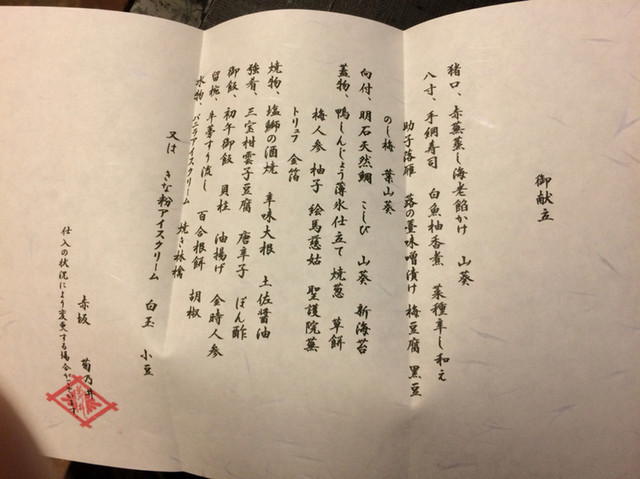 御献立
猪口、赤蕪蒸し海老餡かけ 山葵
八寸、手綱寿司 白魚柚香煮 菜種辛し和え
助子落雁 蕗の薹味噌漬け 梅豆腐 黒豆
のし梅 葉山葵
向付、明石天然鯛 こしび 山葵 新海苔
蓋物、鴨しんじょう薄氷仕立て 焼葱 草餅
梅人参 柚子 絵馬慈姑 聖護院蕪
トリュフ 金箔
焼物、塩鰤の酒焼 辛味大根 土佐醤油
強肴、三宝柑雲子豆腐 唐辛子 ぽん酢
御飯、初午御飯 貝柱 油揚げ 金時人参
留椀、牛蒡すり流し 百合根餅 胡椒
水物、バニラアイスクリーム 焼き林檎
又は きな粉アイスクリーム 白玉 小豆
赤坂 菊乃井
仕入の状況により変更する場合が